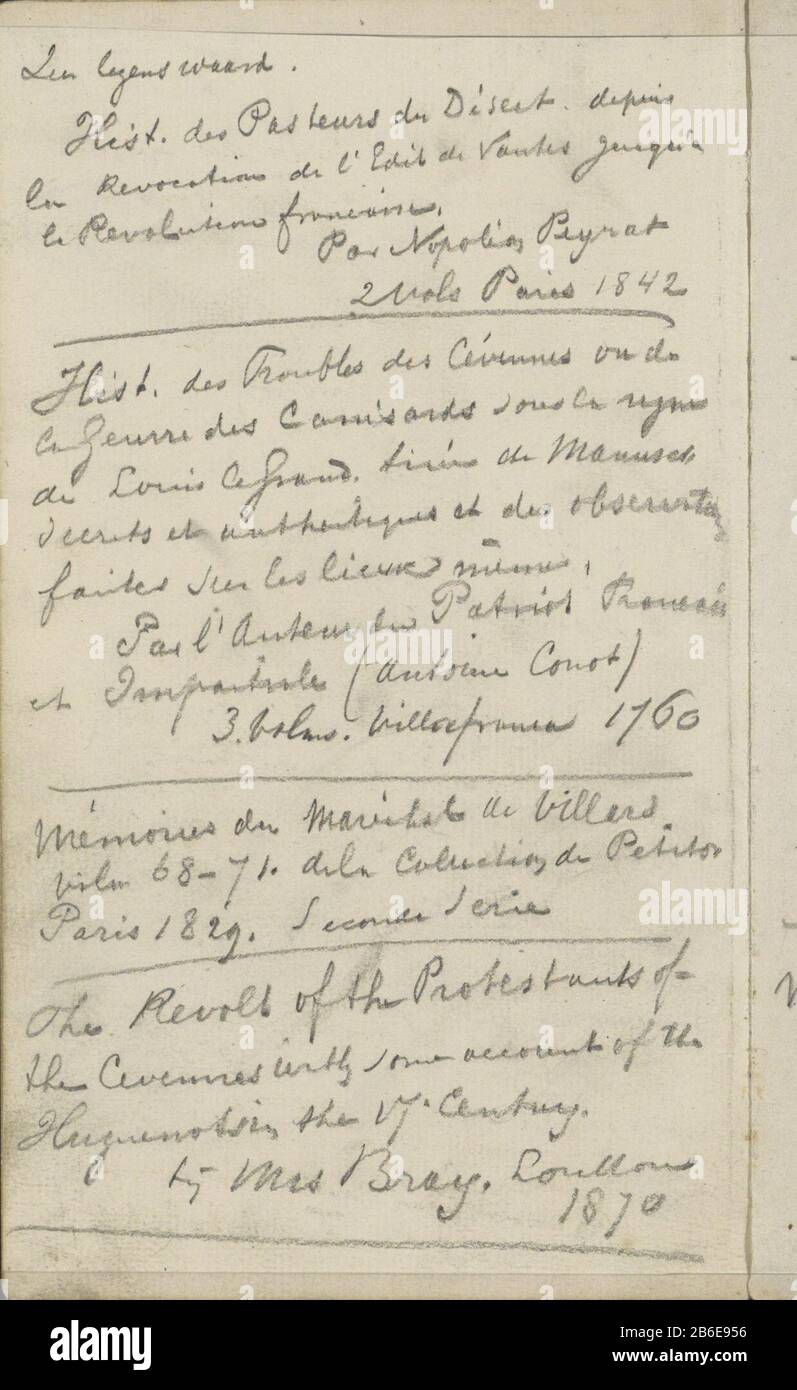 Zeer lezenswaard.
Hist. des Pasteurs du Désert. depuis
la Revocation de l'Edit de Nantes jusqu'a
la Revolution française.
Par Napoléon Peyrat
2 Vols Paris 1842
Hist. des Troubles des Cévennes ou de
la Geurre des Camisards sous le regne
de Louis le Grand. tirée de Manuscr
secrets et authentiques et des observations
faites sur les lieux même,
Par l'Auteur du Patriot Français
et Impartiale (Antoine Court)
3. Volms. Villefranca 1760
Mémoires du Maréchal de Villars
vol. 68-71. de la Colection de Petitot
Paris 1829. Seconde Serie
The Revolt of the Protestants of
the Cevennes with some account of the
Huguenots in the 17. Century.
by Mrs Bray. London
1870
alamy
Image ID: 2B6E956
www.alamy.com